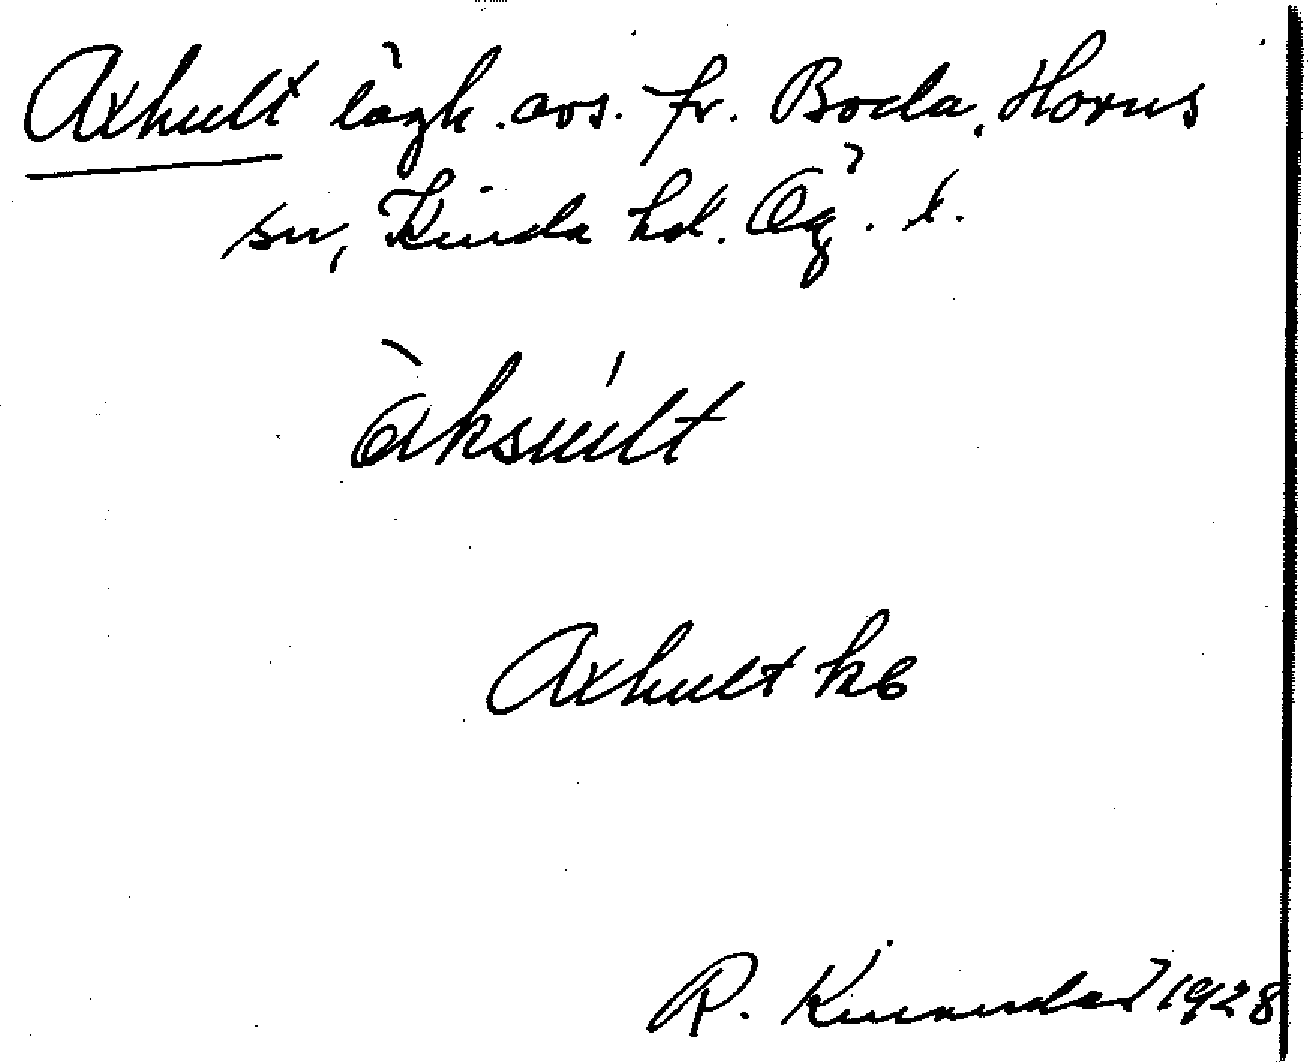 Axhult lägh. avs. fr. Boda, Horns
sn, Kinda hd. Ög. l.
àksúlt
Axhult kb
R. Kinander 1928